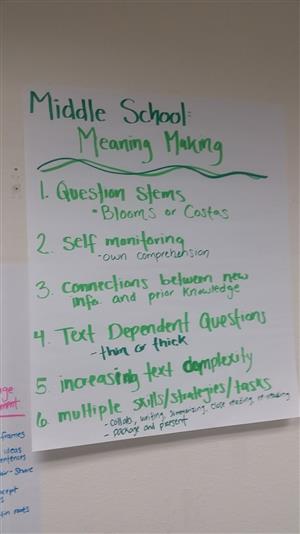 Middle School:
Meaning Making
1. Question Stems
• Blooms or Costas
2. self monitoring
- own comprehension
3. connections between new
info. and prior knowledge
4. Text Dependent Questions
- thin or thick
5. increasing text complexity
6. multiple skills/strategies/tasks
- collab, writing, summarizing, close reading, re-reading
- package and present
frames
ideas
Share